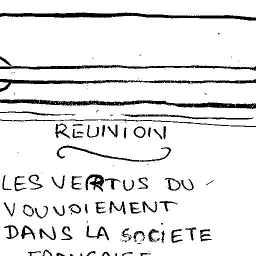 REUNION
LES VERTUS DU
VOUVOIEMENT
DANS LA SOCIETE
FRANCAISE